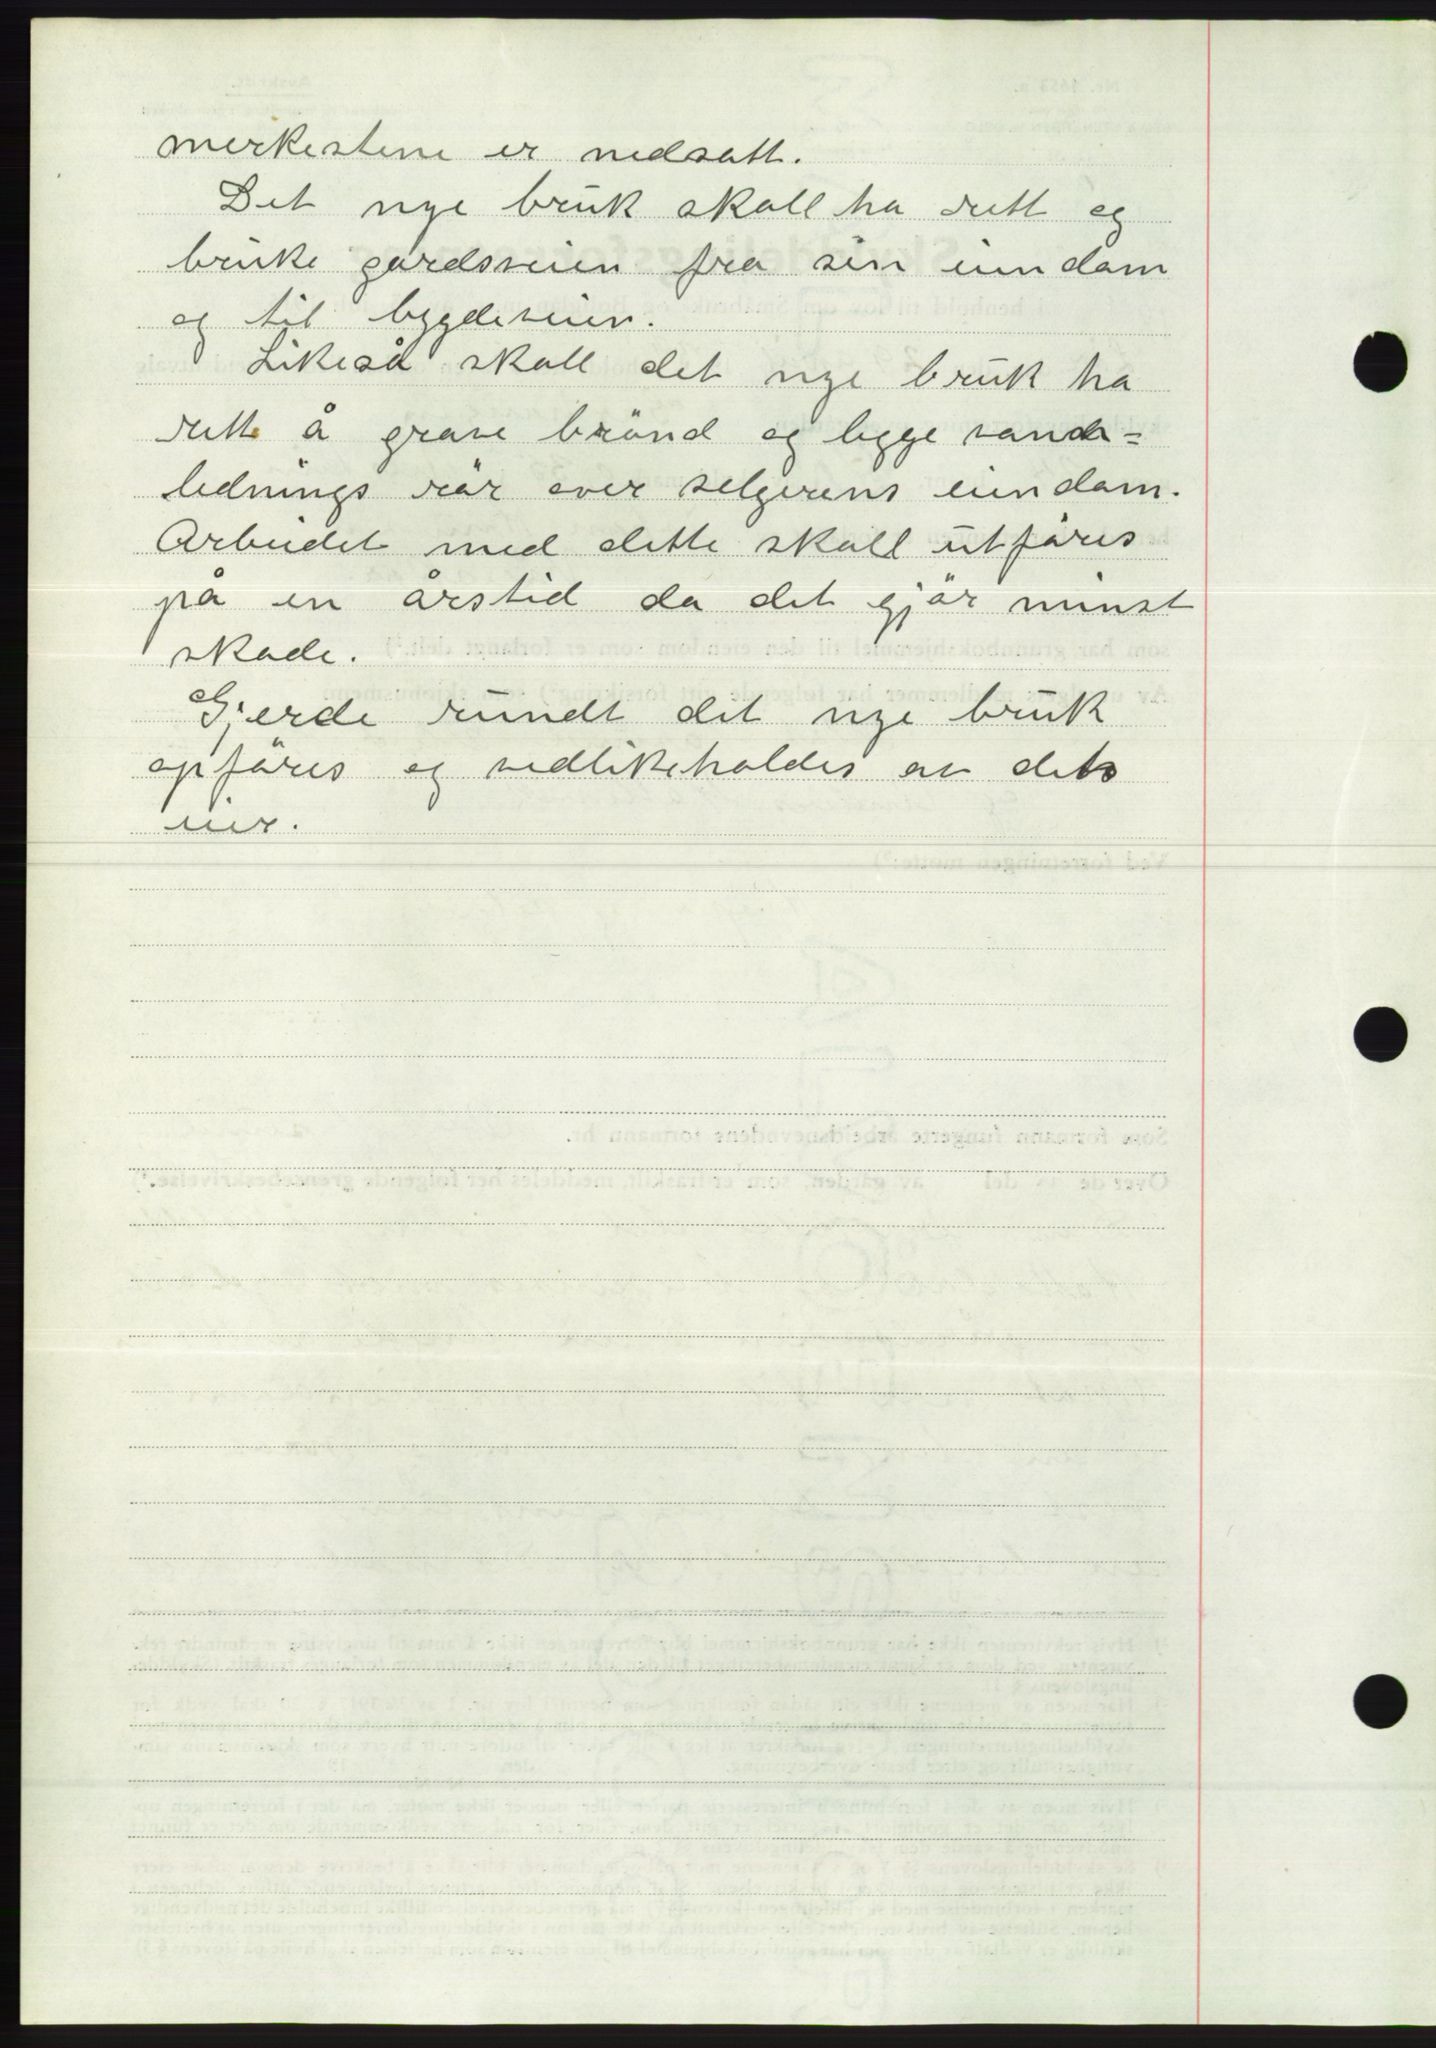 merkestene er nedsatt.
Det nye bruk skall ha rett og
bruke gårdsveien fra sin eiendom
og til bygdeveien.
Likeså skall det nye bruk ha
rett å grave brönd og legge vand-
lednings rör over selgerens eiendom.
Arbeidet med dette skall utföres
på en årstid da det gjör minst
skade.
Gjerde rundt det nye bruk
opföres og vedlikeholdes av dets
eier.